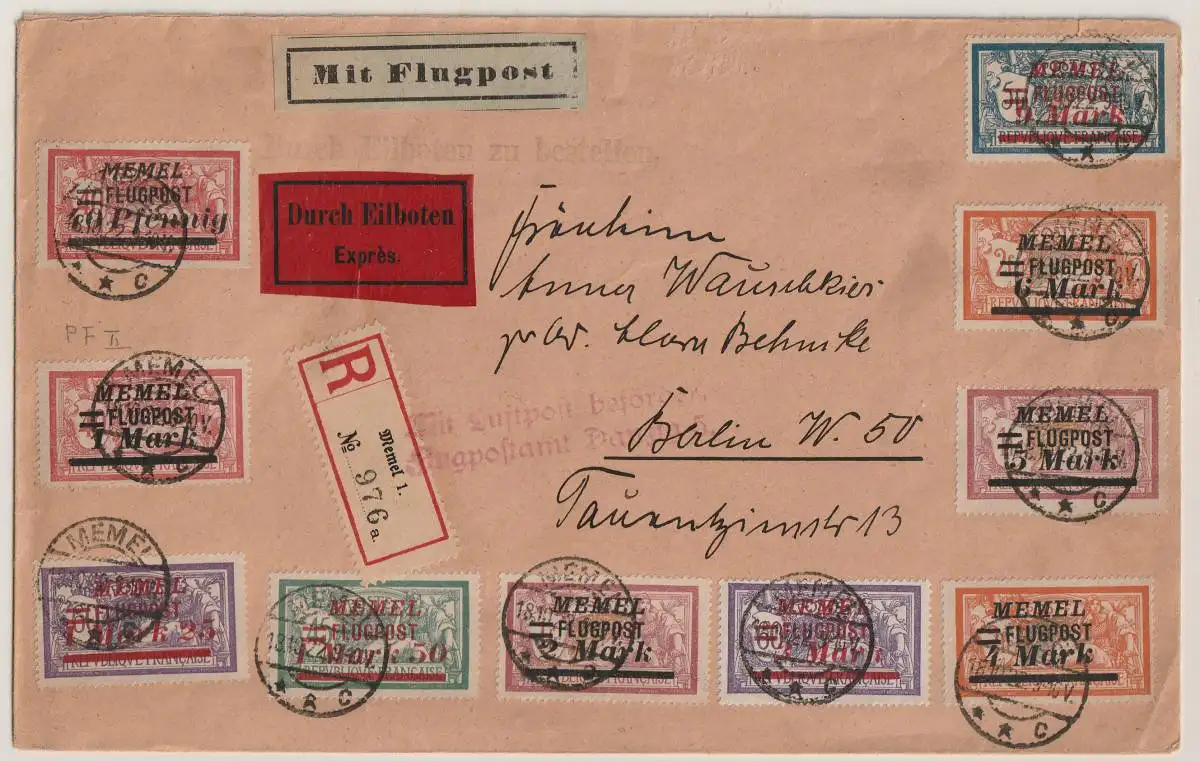 Mit Flugpost
zu bestellen,
Durch Eilboten
Exprès.
Fräulein
Anna Wauschkies
pr. Ad. Clara Behncke
Berlin W. 50
Tauentzienstr 13
Mit Luftpost befördert,
Flugpostamt
R
Memel 1.
№ 976 a.
MEMEL
FLUGPOST
40 Pfennig
REPVBLIQVE FRANÇAISE
C
PF II
MEMEL
MEMEL
FLUGPOST
1 Mark
REPVBLIQVE FRANÇAISE
C
MEMEL
MEMEL
FLUGPOST
1 Mark 25
REPVBLIQVE FRANÇAISE
MEMEL
FLUGPOST
1 Mark 50
REPVBLIQVE FRANÇAISE
C
MEMEL
FLUGPOST
2 Mark
MEMEL
FLUGPOST
3 Mark
REPVBLIQVE FRANÇAISE
C
MEMEL
FLUGPOST
4 Mark
C
MEMEL
FLUGPOST
5 Mark
C
MEMEL
FLUGPOST
6 Mark
C
MEMEL
FLUGPOST
9 Mark
REPVBLIQVE FRANÇAISE
C